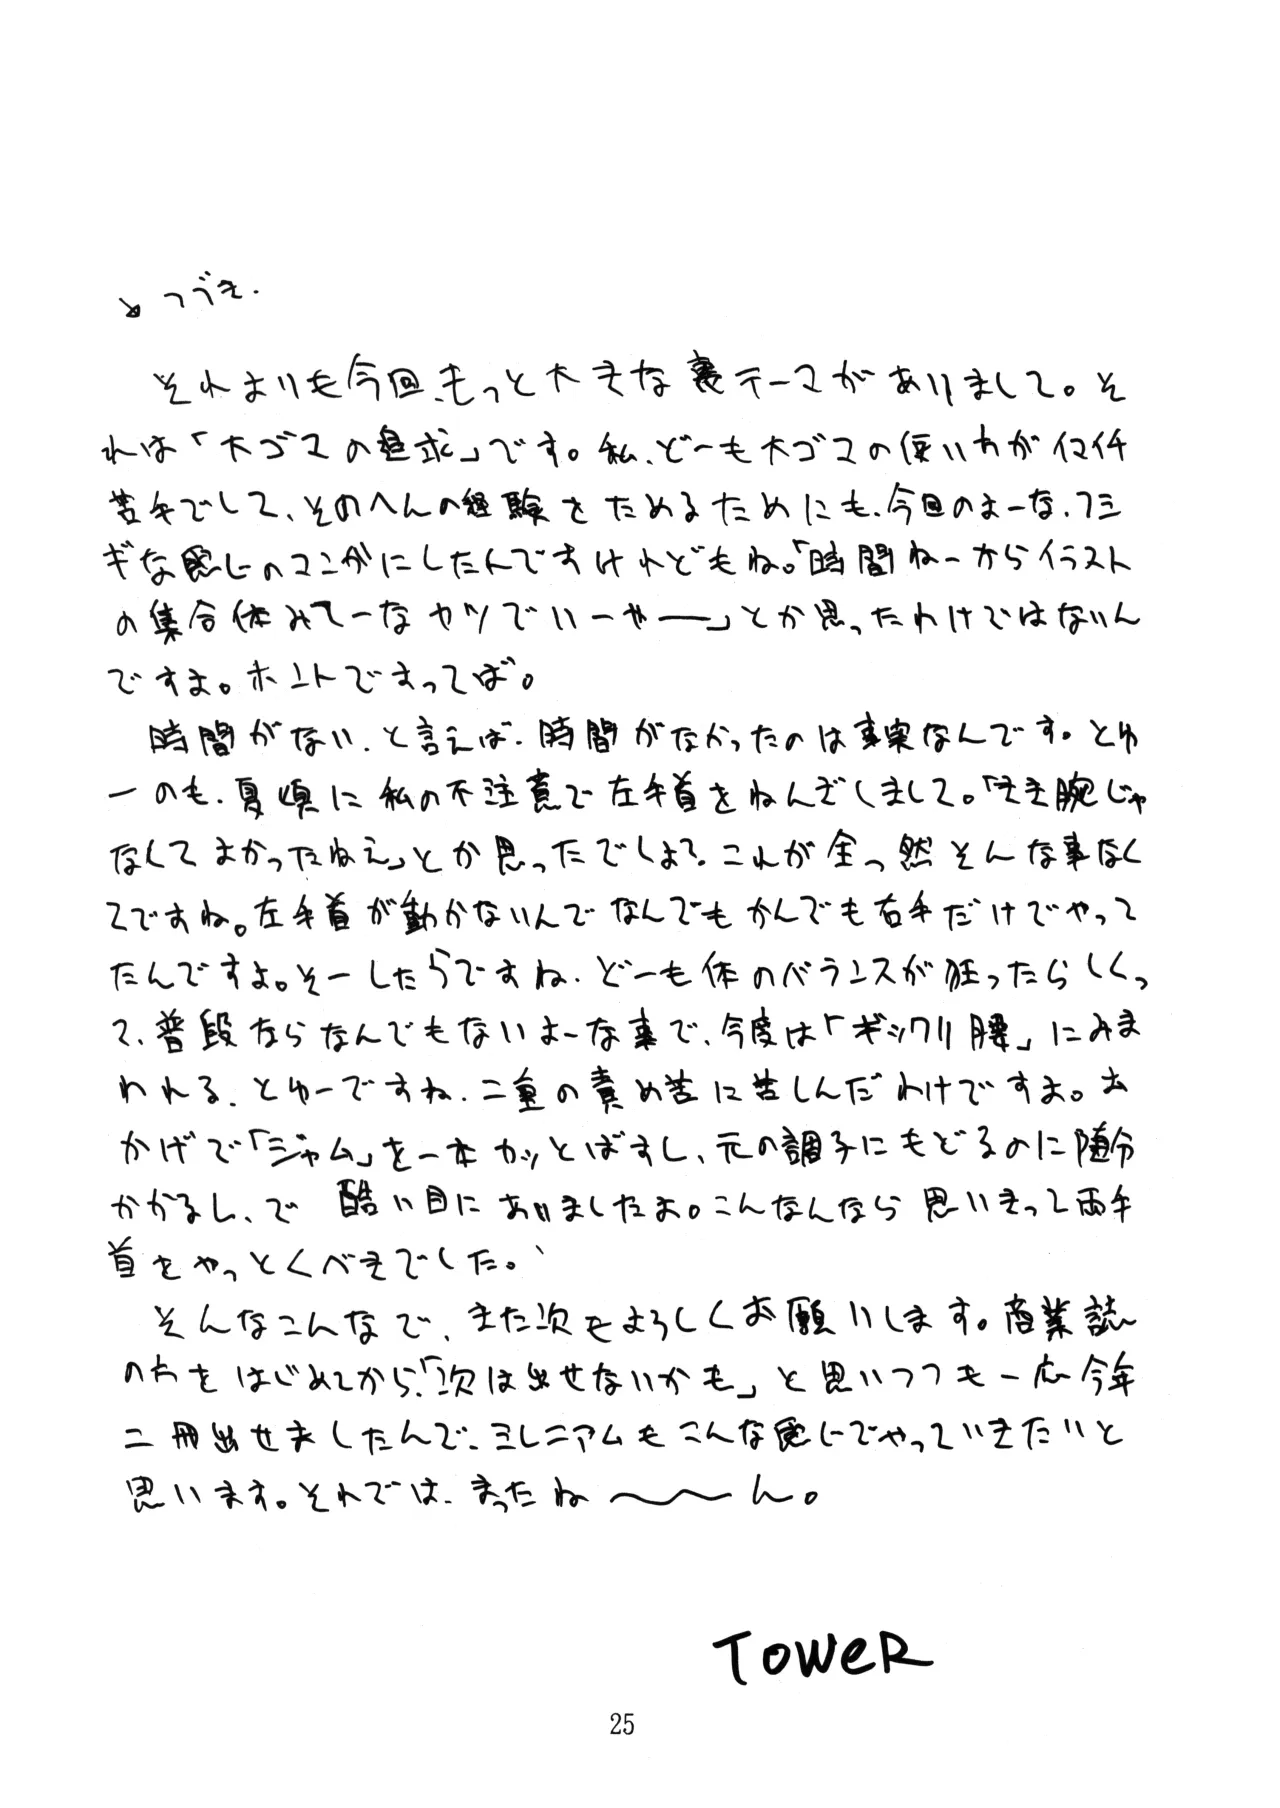 ↘つづき.
それよりも今回、もっと大きな裏テーマがありまして。そ
れは「大ゴマの追求」です。私、どーも大ゴマの使い方がイマイチ
苦手でして、そのへんの経験をためるためにも、今回のよーな、フシ
ギな感じのマンガにしたんですけれどもね。「時間ねーからイラスト
の集合体みてーなヤツでいーやー」とか思ったわけではないん
ですよ。ホントですってば。
時間がない、と言えば、時間がなかったのは事実なんです。とゆ
ーのも、夏頃に私の不注意で左手首をねんざしまして。「きき腕じゃ
なくてよかったねえ」とか思ったでしょ?これが全っ然そんな事なく
てですね。左手首が動かないんでなんでもかんでも右手だけでやって
たんですよ。そーしたらですね、どーも体のバランスが狂ったらしくっ
て、普段ならなんでもないよーな事で、今度は「ギックリ腰」にみま
われる、とゆーですね、二重の責め苦に苦しんだわけですよ。お
かげで「ジャム」を一本カッとばすし、元の調子にもどるのに随分
かかるし、で酷い目にあいましたよ。こんなんなら思いきって両手
首をやっとくべきでした。
そんなこんなで、また次もよろしくお願いします。商業誌
の方をはじめてから、「次は出せないかも」と思いつつも一応今年
二冊出せましたんで、ミレニアムもこんな感じでやっていきたいと
思います。それでは、まったね〜〜ん。
TOWeR
25